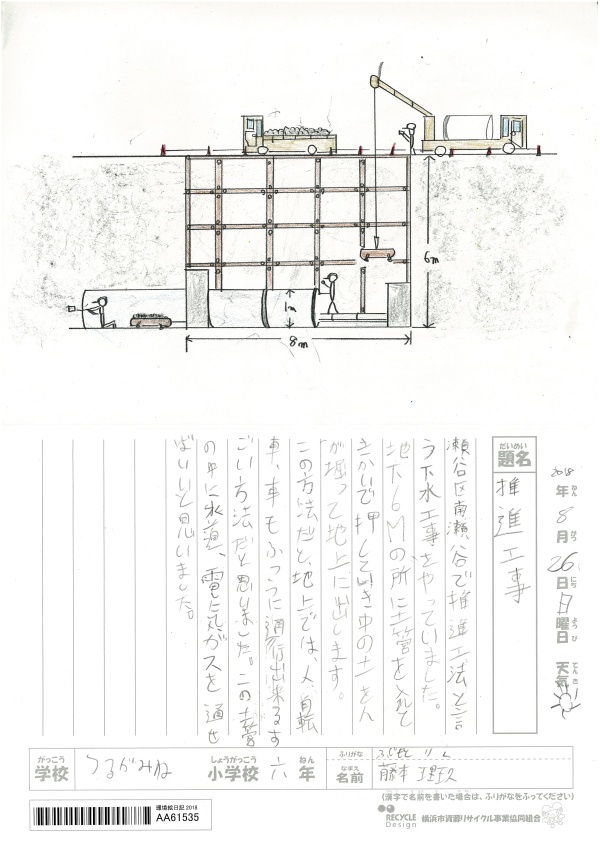 6m
1m
8m
だいめい
題名
推進工事
2018年 8月 26日 日曜日 天気
ねん がつ にち ようび てんき
瀬谷区南瀬谷で推進工法と言
う下水工事をやっていました。
地下6Mの所に土管を入れと
きかいで押していき中の土を人
が堀って地上に出します。
この方法だと、地上では、人、自転
車、車もふつうに通行出来るす
ごい方法だと思いました。この土管
の中に水道、電気、ガスを通せ
ばいいと思いました。
がっこう しょうがっこう ねん
学校 つるがみね 小学校 六年
ふりがな ふじもと
なまえ
名前 藤本
(漢字で名前を書いた場合は、ふりがなをふってください)
環境絵日記 2018
AA61535
RECYCLE Design
横浜市資源リサイクル事業協同組合